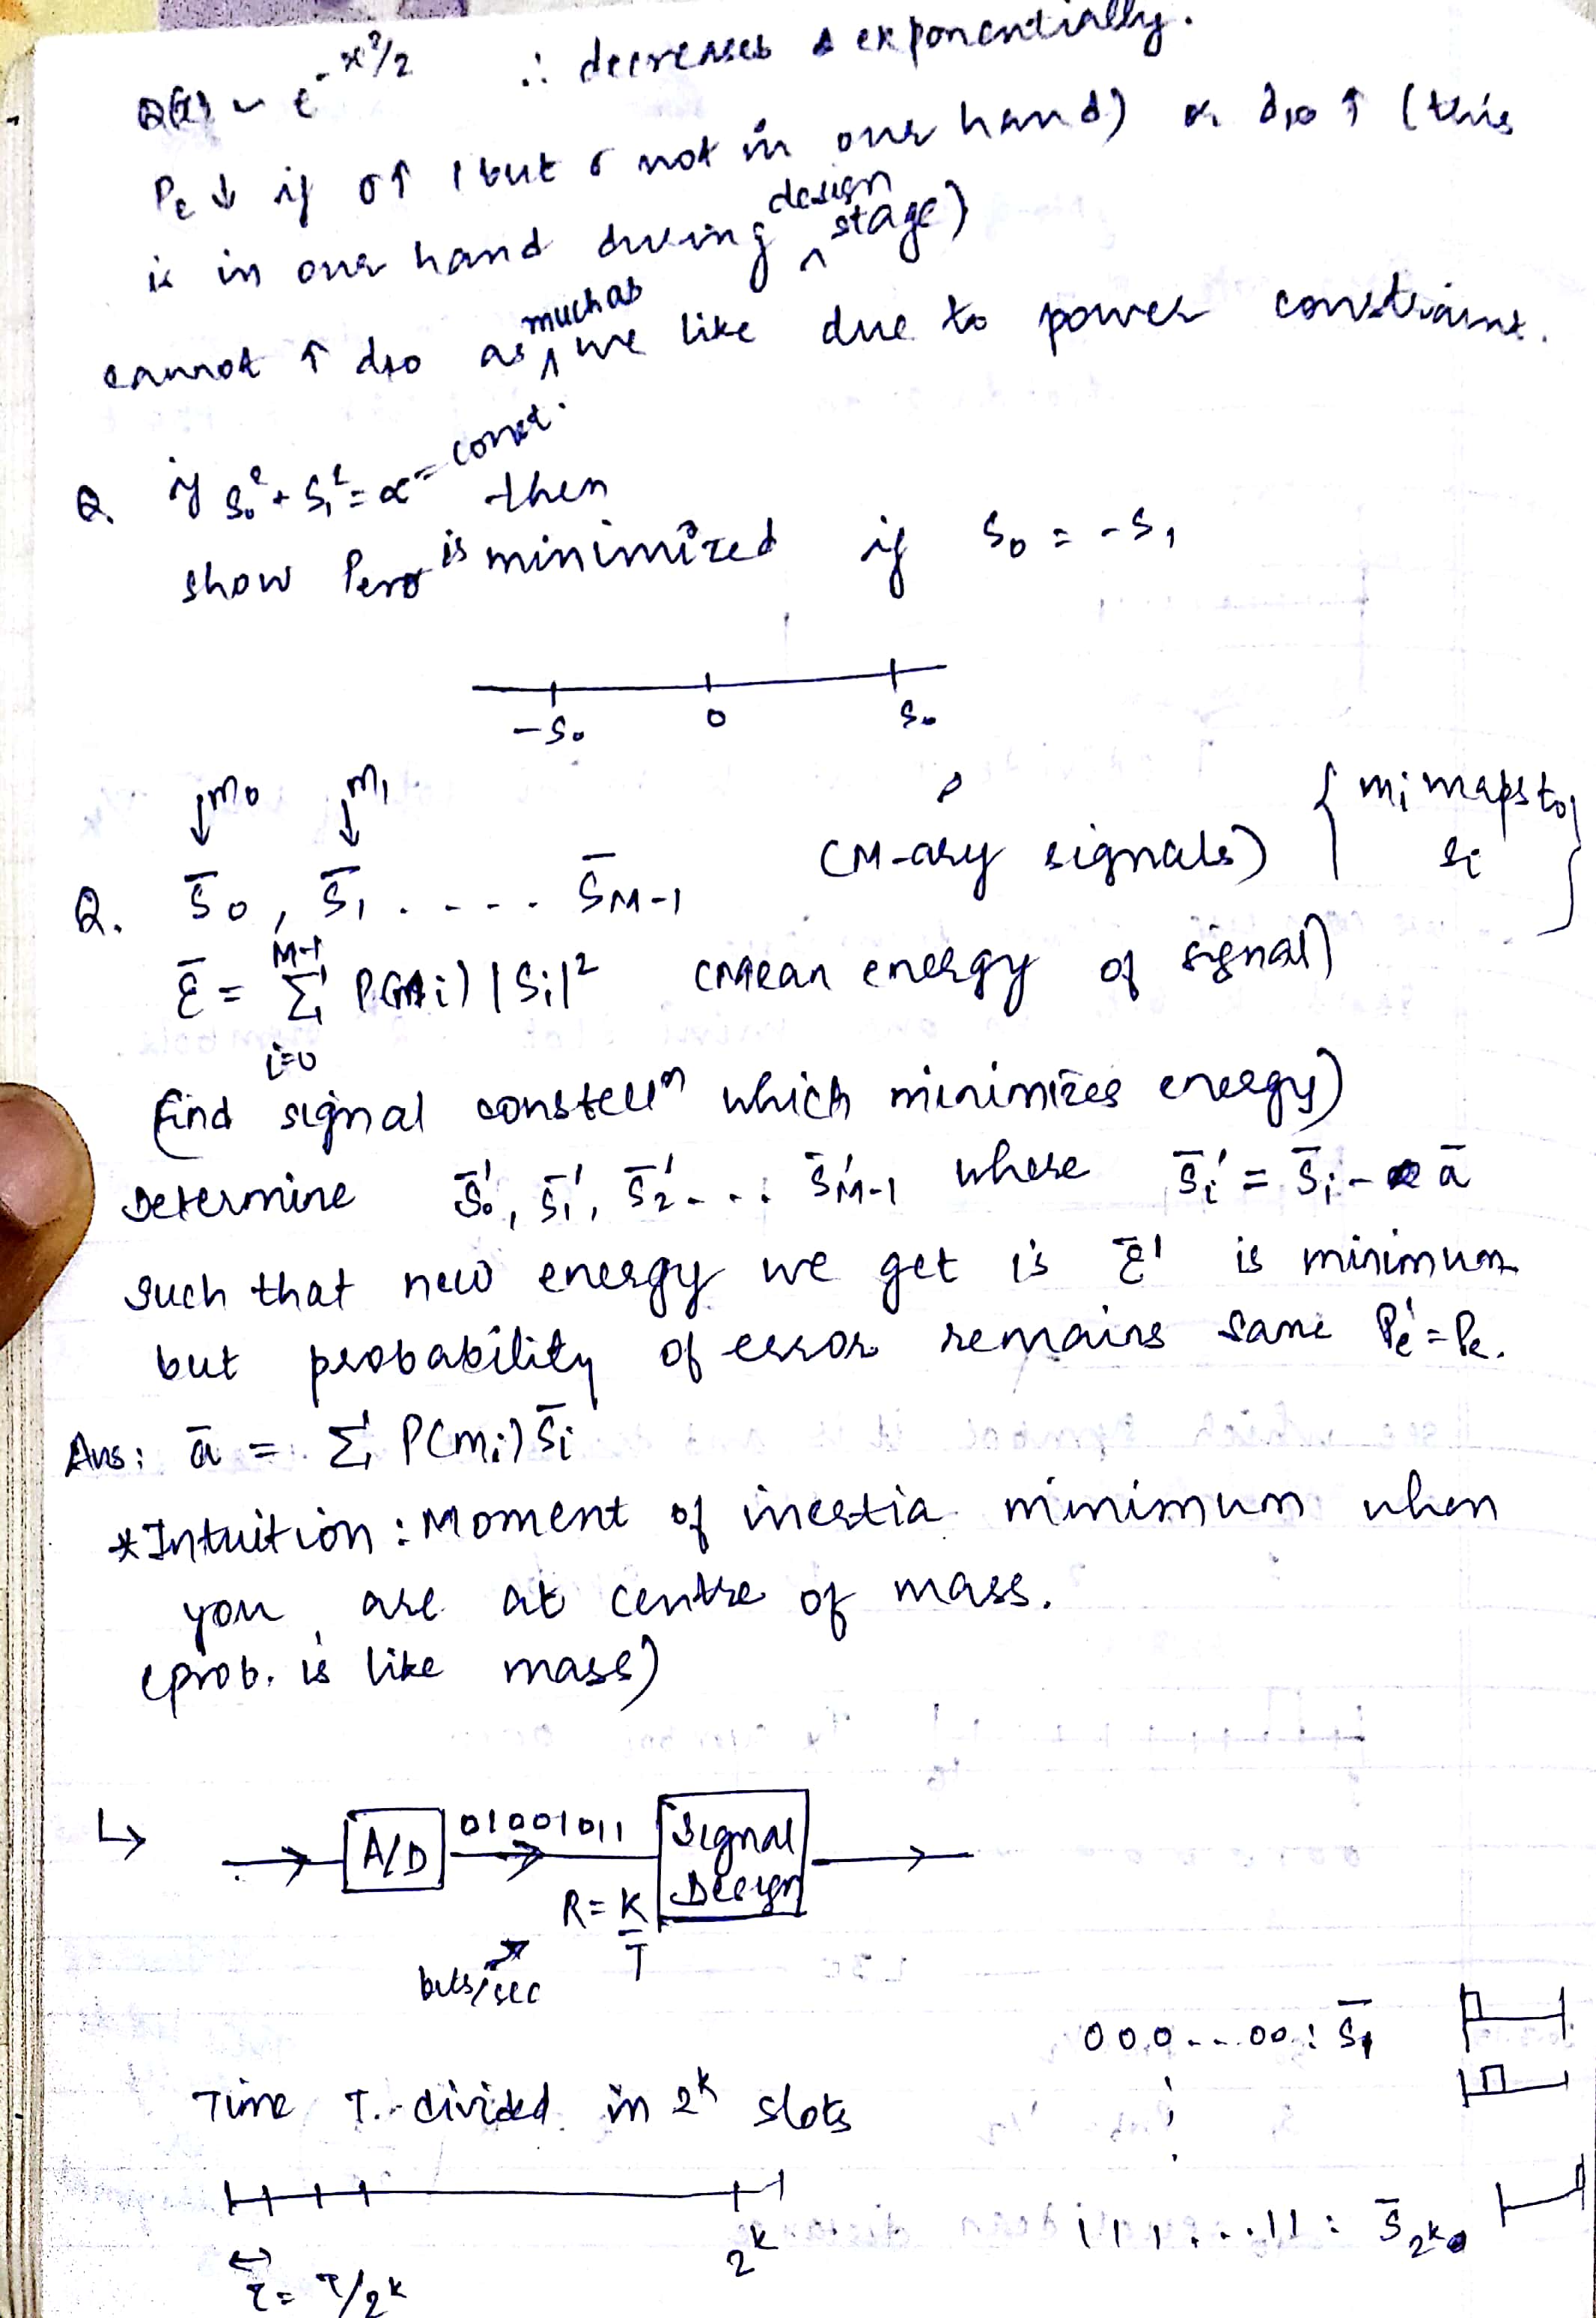 Q(x) ~ e^{-x²/2} ∴ decreases exponentially.
Pe ↓ if σ↑ (but σ not in our hand) or d10 ↑ (this
is in our hand during design stage)
cannot ↑ d10 as much as we like due to power constraint.
Q. if S0² + S1² = α = const. then
show Perror is minimized if S0 = -S1
-S0 0 S0
↓m0 ↓m1
Q. S̄0, S̄1 . - - - . S̄M-1 (M-ary signals) { mi maps to si }
Ē = Σ_{i=0}^{M-1} P(mi) |Si|² (Mean energy of signal)
find signal constellⁿ which minimizes energy)
Determine S̄0', S̄1', S̄2' - . . S̄'M-1 where S̄i' = S̄i - ā
such that new energy we get is Ē' is minimum
but probability of error remains same Pe' = Pe.
Ans: ā = Σ P(mi) S̄i
*Intuition: Moment of inertia minimum when
you are at centre of mass.
(prob. is like mass)
↳ → A/D 01001011 → Signal Design →
R = K/T
bits/sec
000 - - . 00 : S̄1
Time T divided in 2^k slots
2^k
111 . . . 11 : S̄2^k
τ = T/2^k